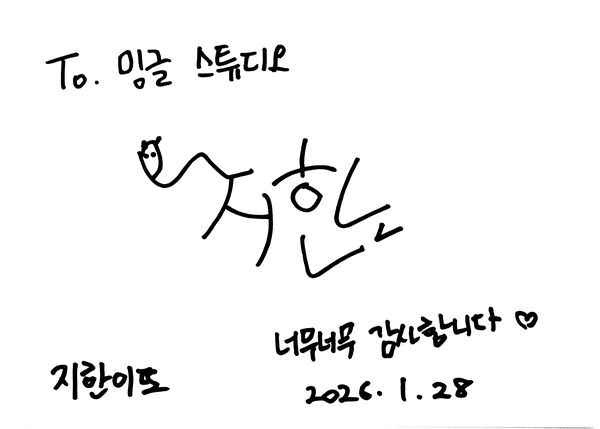 To. 밍글 스튜디오
지한
너무너무 감사합니다 ♡
지한이또
2026. 1. 28